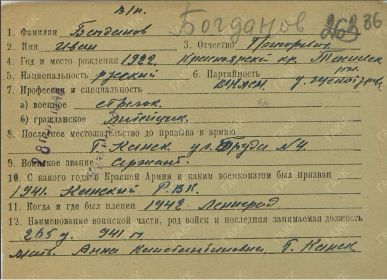 В/п.
Богданов
1. Фамилия Богданов
2. Имя Иван 3. Отчество Григорьевич
4. Год и место рождения 1922. Красноярский кр.
5. Национальность русский 6. Партийность
7. Профессия и специальность
а) военное стрелок.
б) гражданское
8. Последнее местожительство до призыва в армию
г. Канск ул. Труда №4.
9. Воинское звание Сержант.
10. С какого года в Красной Армии и каким военкоматом был призван
1941. Канский Р.В.К.
11. Когда и где был пленен 1942 Ленинград
12. Наименование воинской части, род войск и последняя занимаемая должность
265 д. 941 п
Мать. Анна Константиновна г. Канск